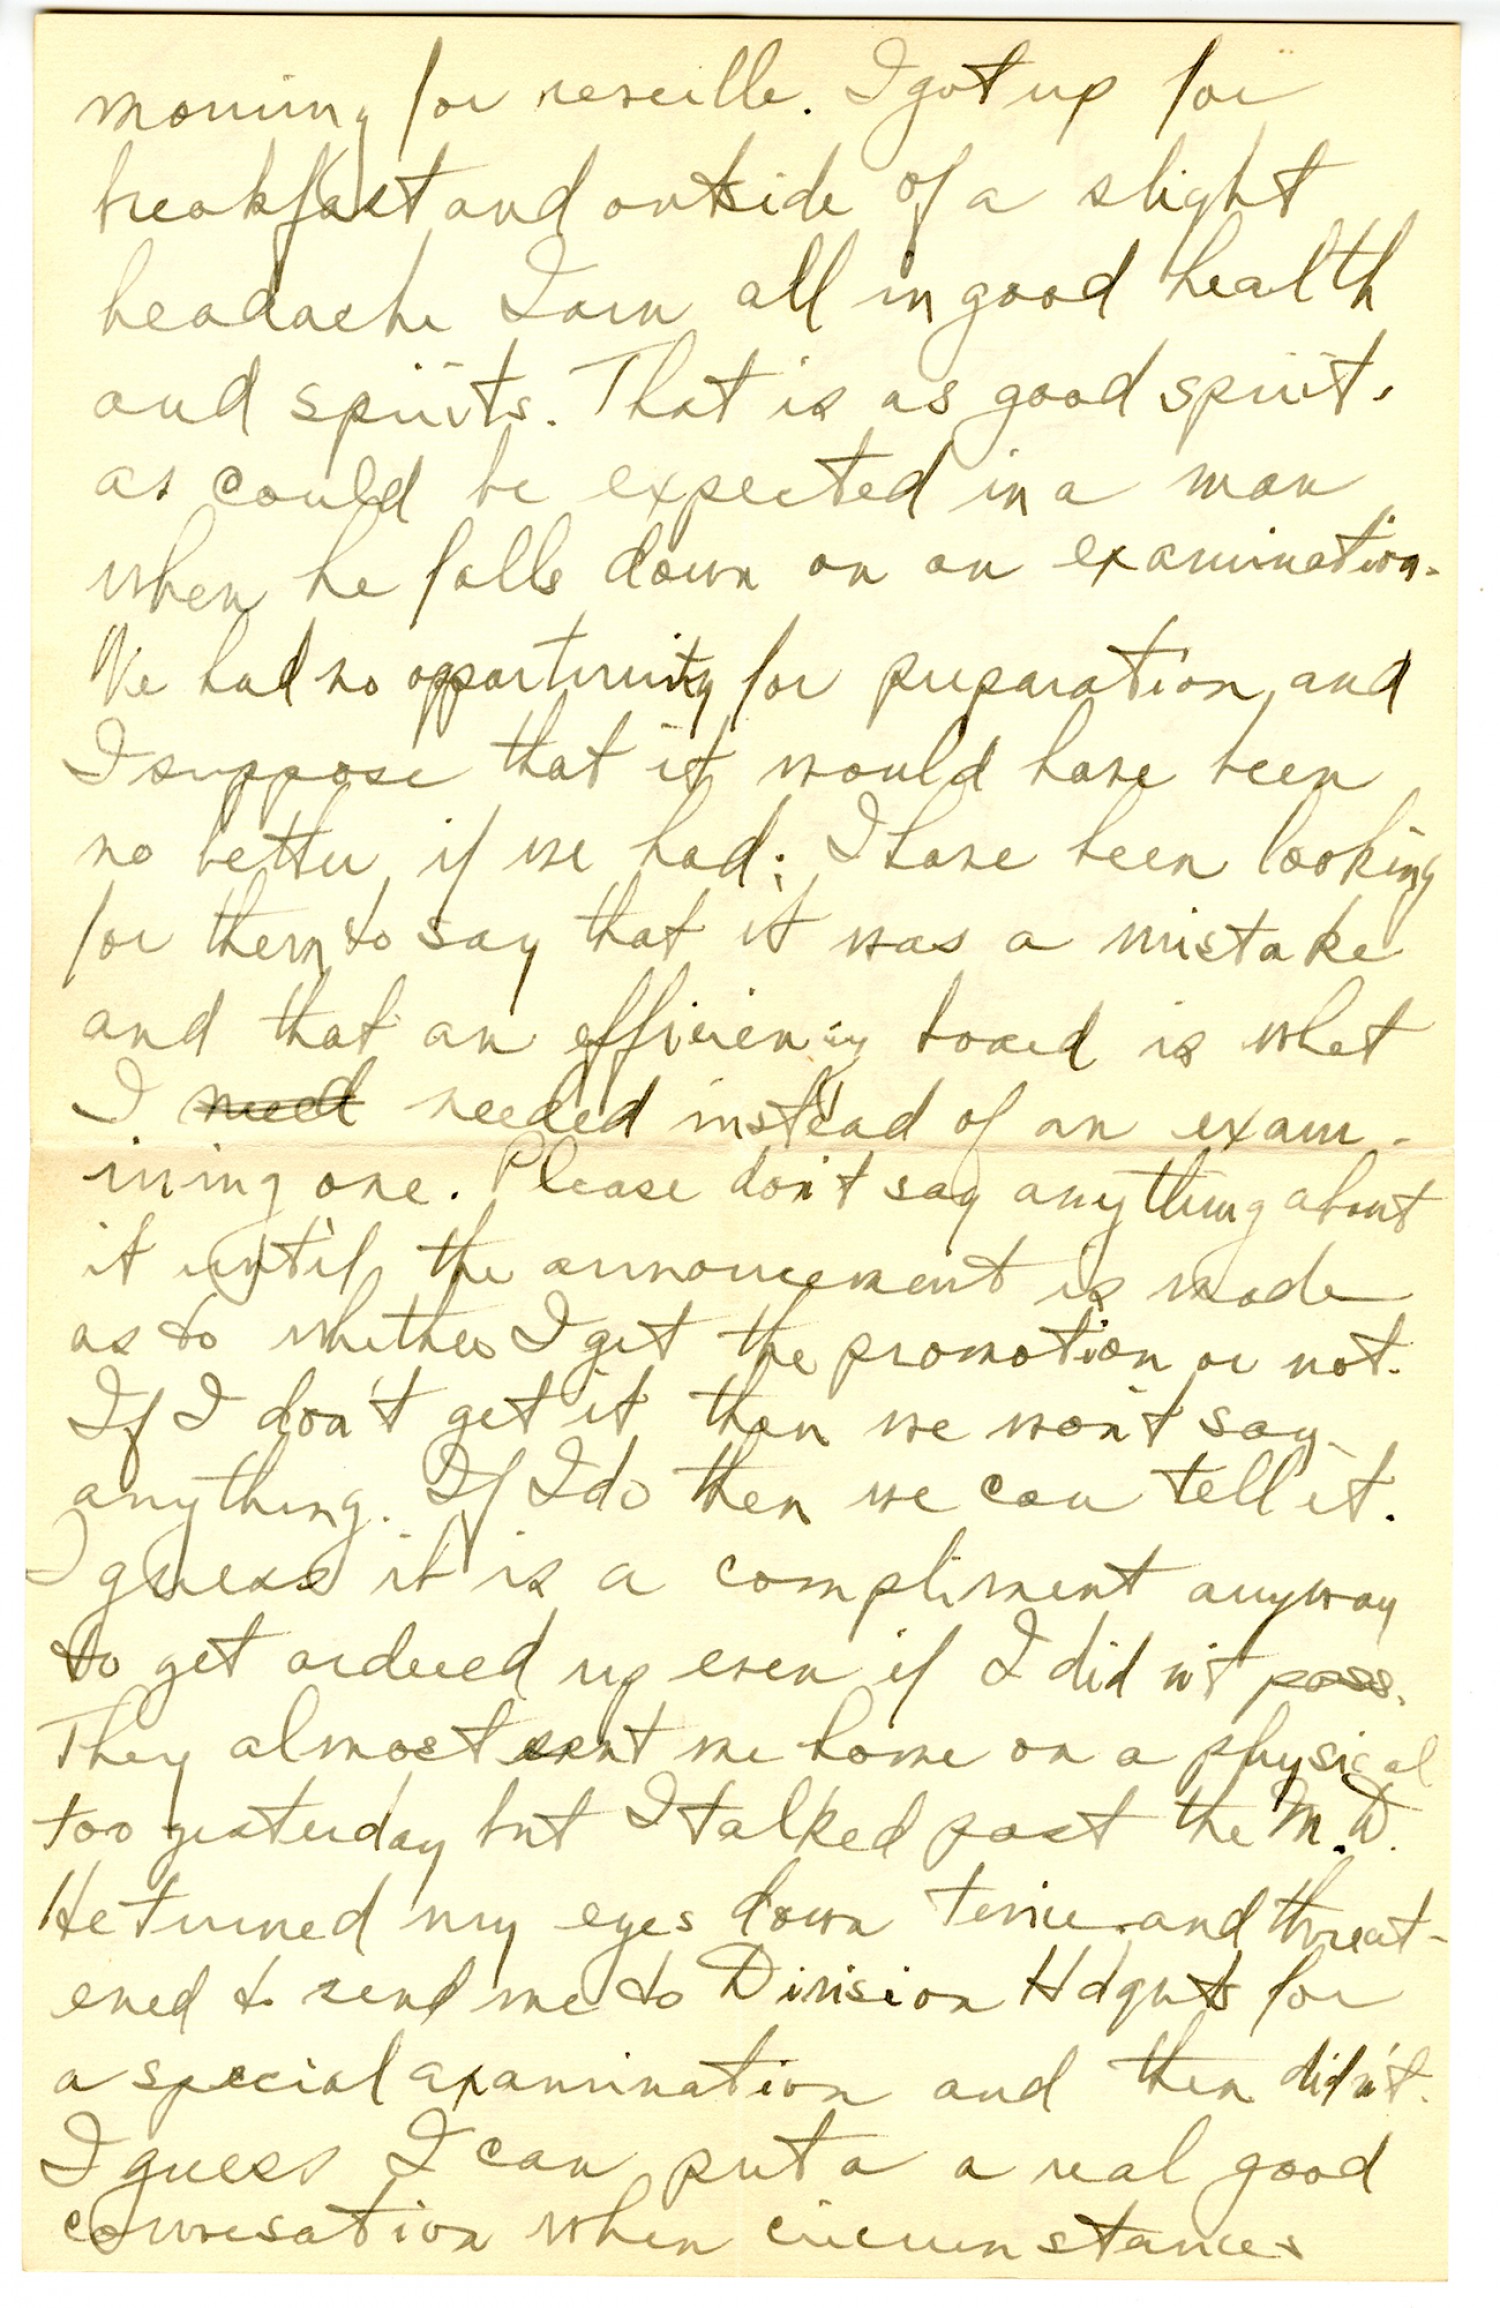 morning for reveille. I got up for
breakfast and outside of a slight
headache I am all in good health
and spirits. That is as good spirits
as could be expected in a man
when he falls down on an examination.
We had no opportunity for preparation, and
I suppose that it would have been
no better if we had; I have been looking
for them to say that it was a mistake
and that an efficiency board is what
I need needed instead of an exam-
ining one. Please don't say anything about
it until the announcement is made
as to whether I get the promotion or not.
If I don't get it then we won't say
anything. If I do then we can tell it.
I guess it is a compliment anyway
to get ordered up even if I did n't pass.
They almost sent me home on a physical
too yesterday but I talked past the M.D.
He turned my eyes down twice and threat-
ened to send me to Division Hdqrts for
a special examination and then didn't.
I guess I can put a a real good
conversation when circumstances